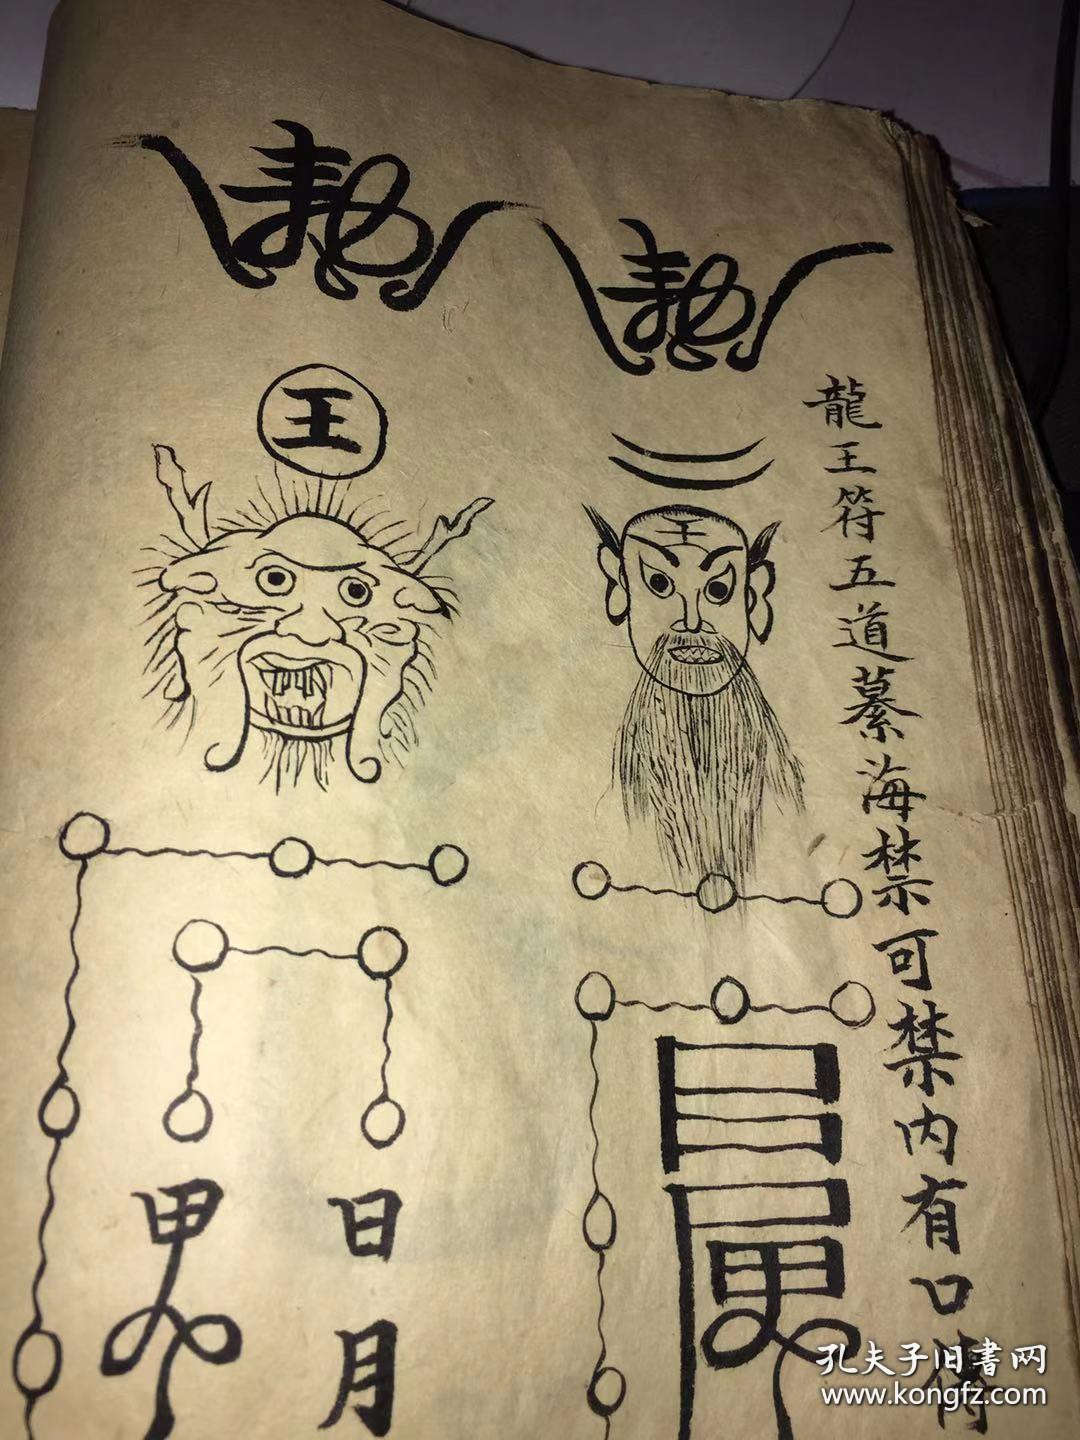 龍王符五道蓁海禁可禁內有口傳
勅
王
勅
王
日月
甲
孔夫子旧書网
www.kongfz.com